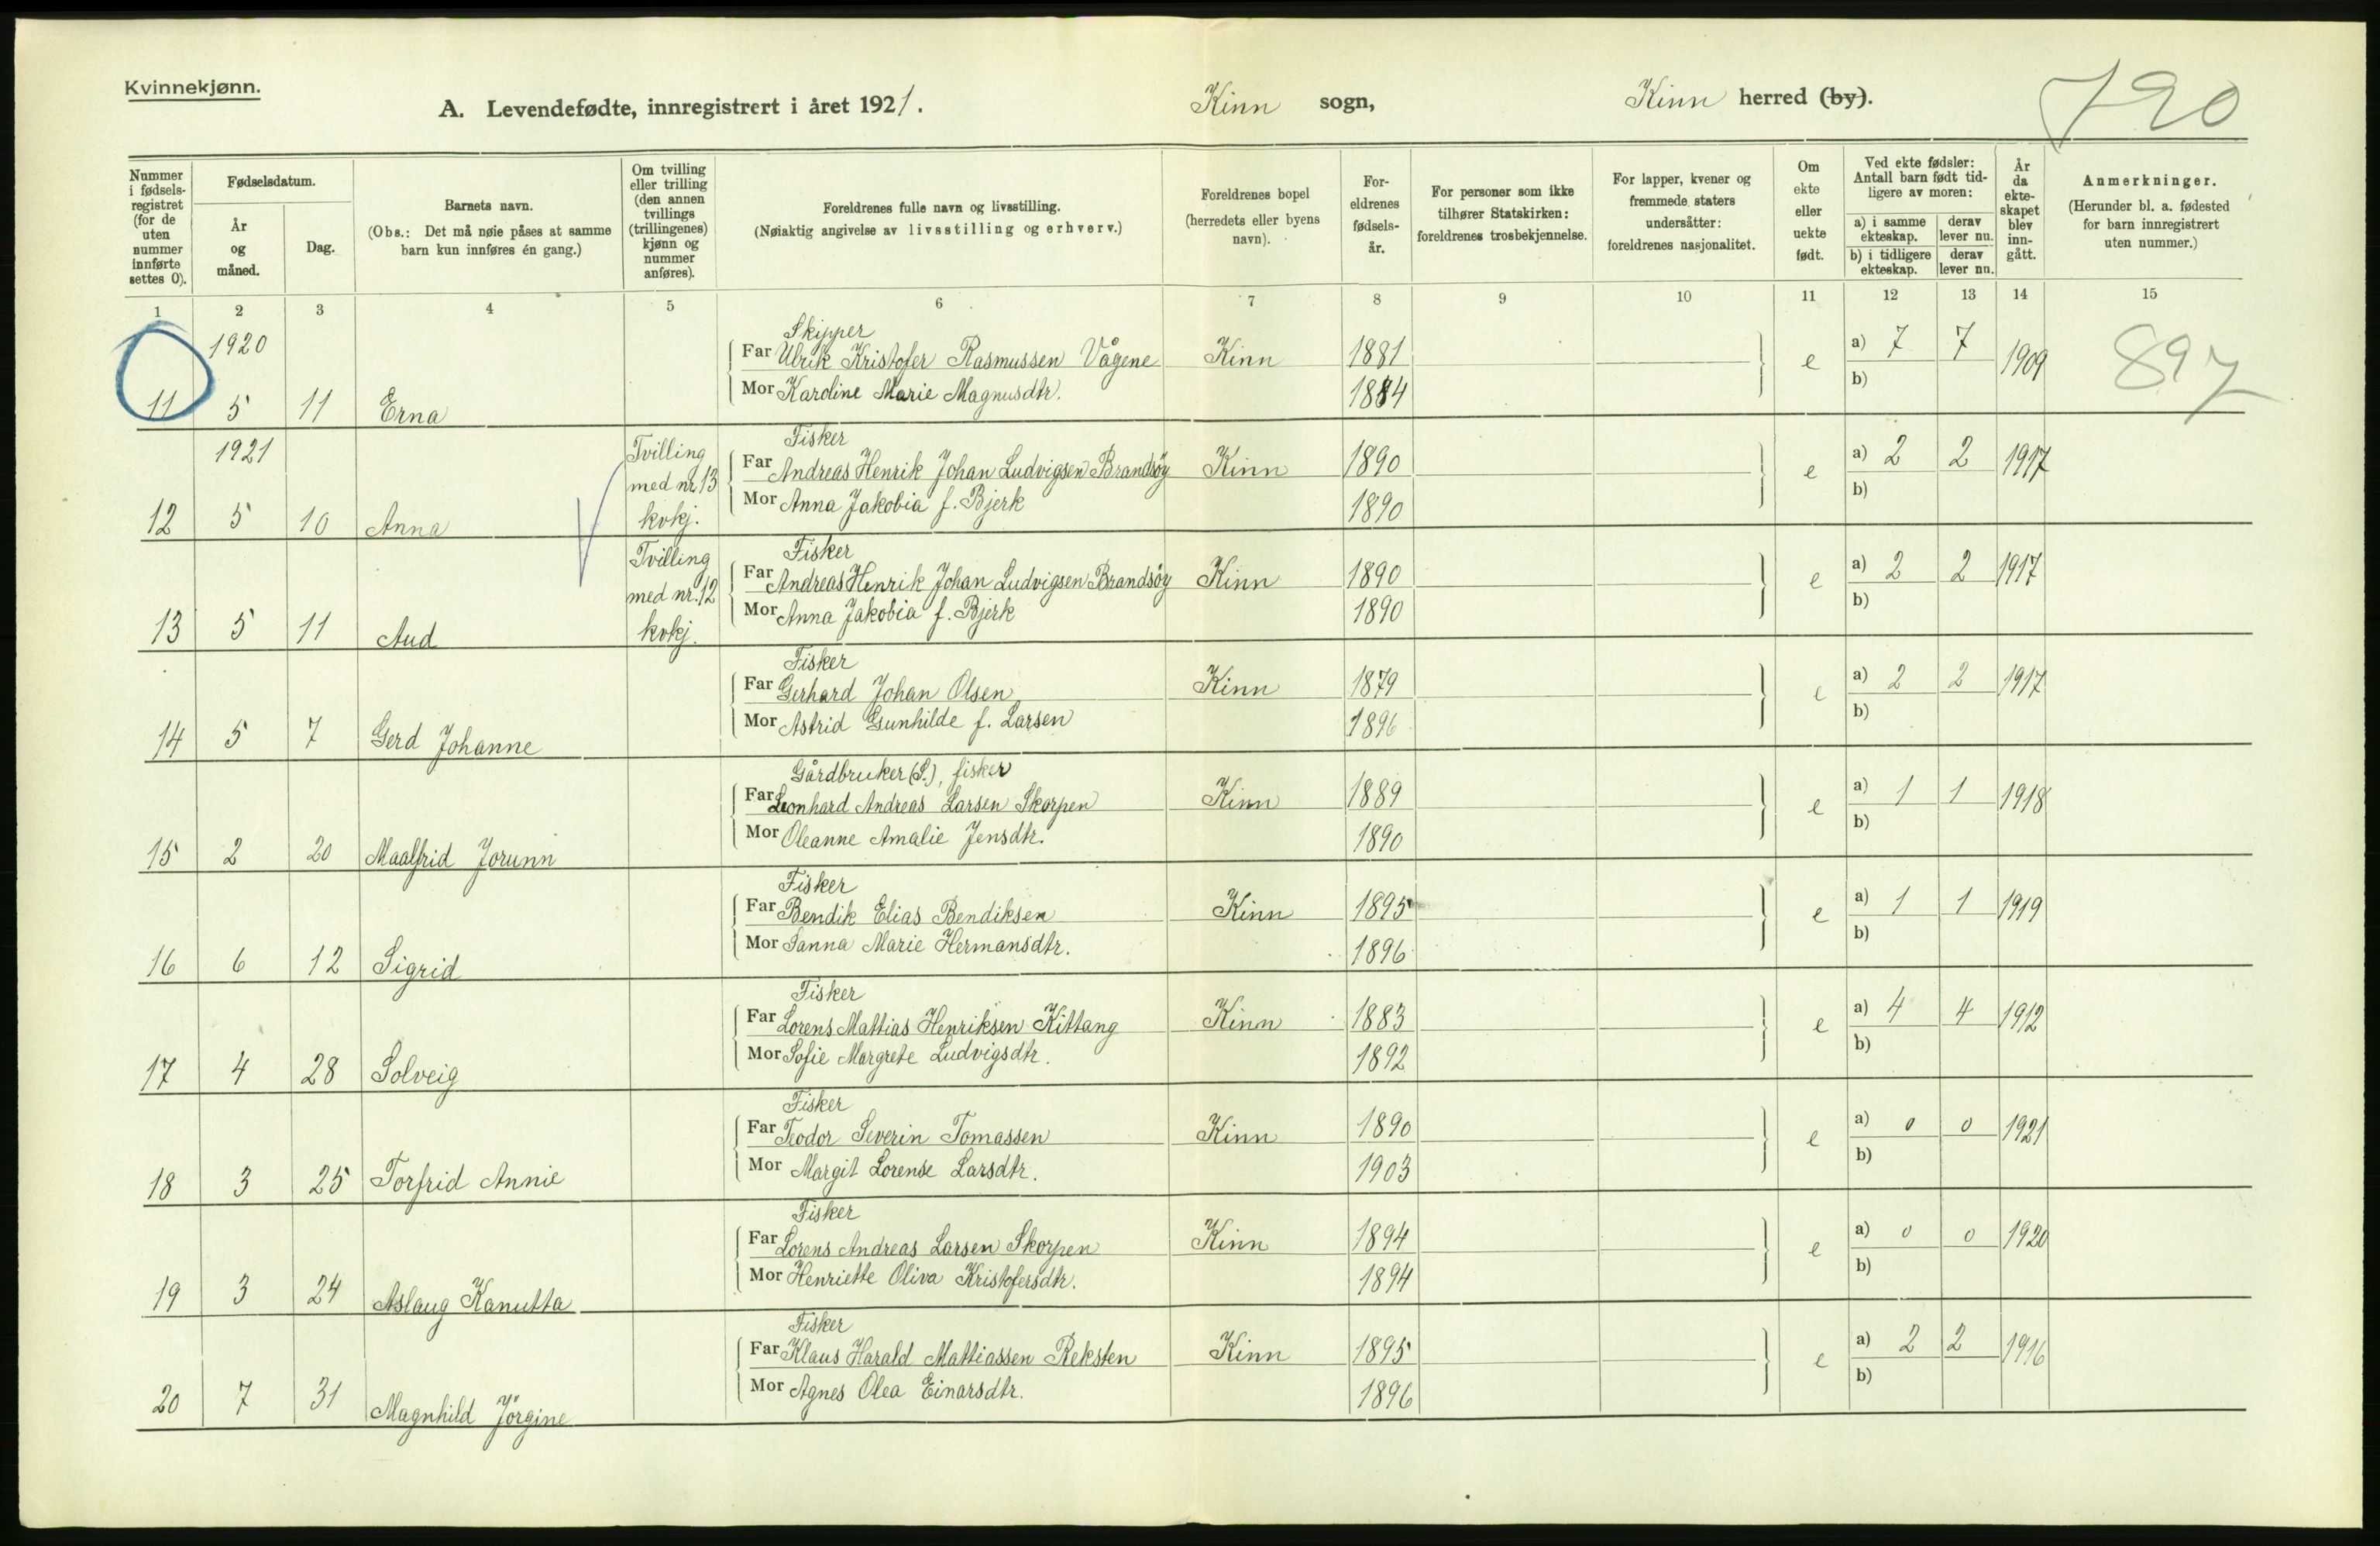 Kvinnekjønn.
A. Levendefødte, innregistrert i året 1921. Kinn sogn, Kinn herred (by).
790
Nummer i fødsels-registret (for de uten nummer innførte settes 0).
Fødselsdatum.
År og måned.
Dag.
Barnets navn.
(Obs.: Det må nøie påses at samme barn kun innføres én gang.)
Om tvilling eller trilling (den annen tvillings (trillingenes) kjønn og nummer anføres).
Foreldrenes fulle navn og livsstilling.
(Nøiaktig angivelse av livsstilling og erhverv.)
Foreldrenes bopel (herredets eller byens navn).
For-eldrenes fødsels-år.
For personer som ikke tilhører Statskirken: foreldrenes trosbekjennelse.
For lapper, kvener og fremmede staters undersåtter: foreldrenes nasjonalitet.
Om ekte eller uekte født.
Ved ekte fødsler: Antall barn født tid-ligere av moren:
a) i samme ekteskap.
derav lever nu.
b) i tidligere ekteskap.
derav lever nu.
År da ekte-skapet blev inn-gått.
Anmerkninger.
(Herunder bl. a. fødested for barn innregistrert uten nummer.)
1 2 3 4 5 6 7 8 9 10 11 12 13 14 15
1920 Skipper
Far Ulrik Kristofer Rasmussen Vågene Kinn 1881 e a) 7 7 1909 897
11 5 11 Erna Mor Karoline Marie Magnusdtr. 1884 b)
1921 Tvilling med nr. 13 kvkj. Fisker
Far Andreas Henrik Johan Ludvigsen Brandsöy Kinn 1890 e a) 2 2 1917
12 5 10 Anna Mor Anna Jakobia f. Bjerk 1890 b)
Tvilling med nr. 12 kvkj. Fisker
Far Andreas Henrik Johan Ludvigsen Brandsöy Kinn 1890 e a) 2 2 1917
13 5 11 Aud Mor Anna Jakobia f. Bjerk 1890 b)
Fisker
Far Gerhard Johan Olsen Kinn 1879 e a) 2 2 1917
14 5 7 Gerd Johanne Mor Astrid Gunhilde f. Larsen 1896 b)
Gårdbruker (S.), fisker
Far Leonhard Andreas Larsen Skorpen Kinn 1889 e a) 1 1 1918
15 2 20 Maalfrid Jorunn Mor Oleanne Amalie Jensdtr. 1890 b)
Fisker
Far Bendik Elias Bendiksen Kinn 1895 e a) 1 1 1919
16 6 12 Sigrid Mor Sanna Marie Hermansdtr. 1896 b)
Fisker
Far Lorens Mattias Henriksen Kittang Kinn 1883 e a) 4 4 1912
17 4 28 Solveig Mor Sofie Margrete Ludvigsdtr. 1892 b)
Fisker
Far Teodor Severin Tomassen Kinn 1890 e a) 0 0 1921
18 3 25 Torfrid Annie Mor Margit Lorense Larsdtr. 1903 b)
Fisker
Far Lorens Andreas Larsen Skorpen Kinn 1894 e a) 0 0 1920
19 3 24 Aslaug Kanutta Mor Henriette Oliva Kristofersdtr. 1894 b)
Fisker
Far Klaus Harald Mattiassen Reksten Kinn 1895 e a) 2 2 1916
20 7 31 Magnhild Jörgine Mor Agnes Olea Einarsdtr. 1896 b)